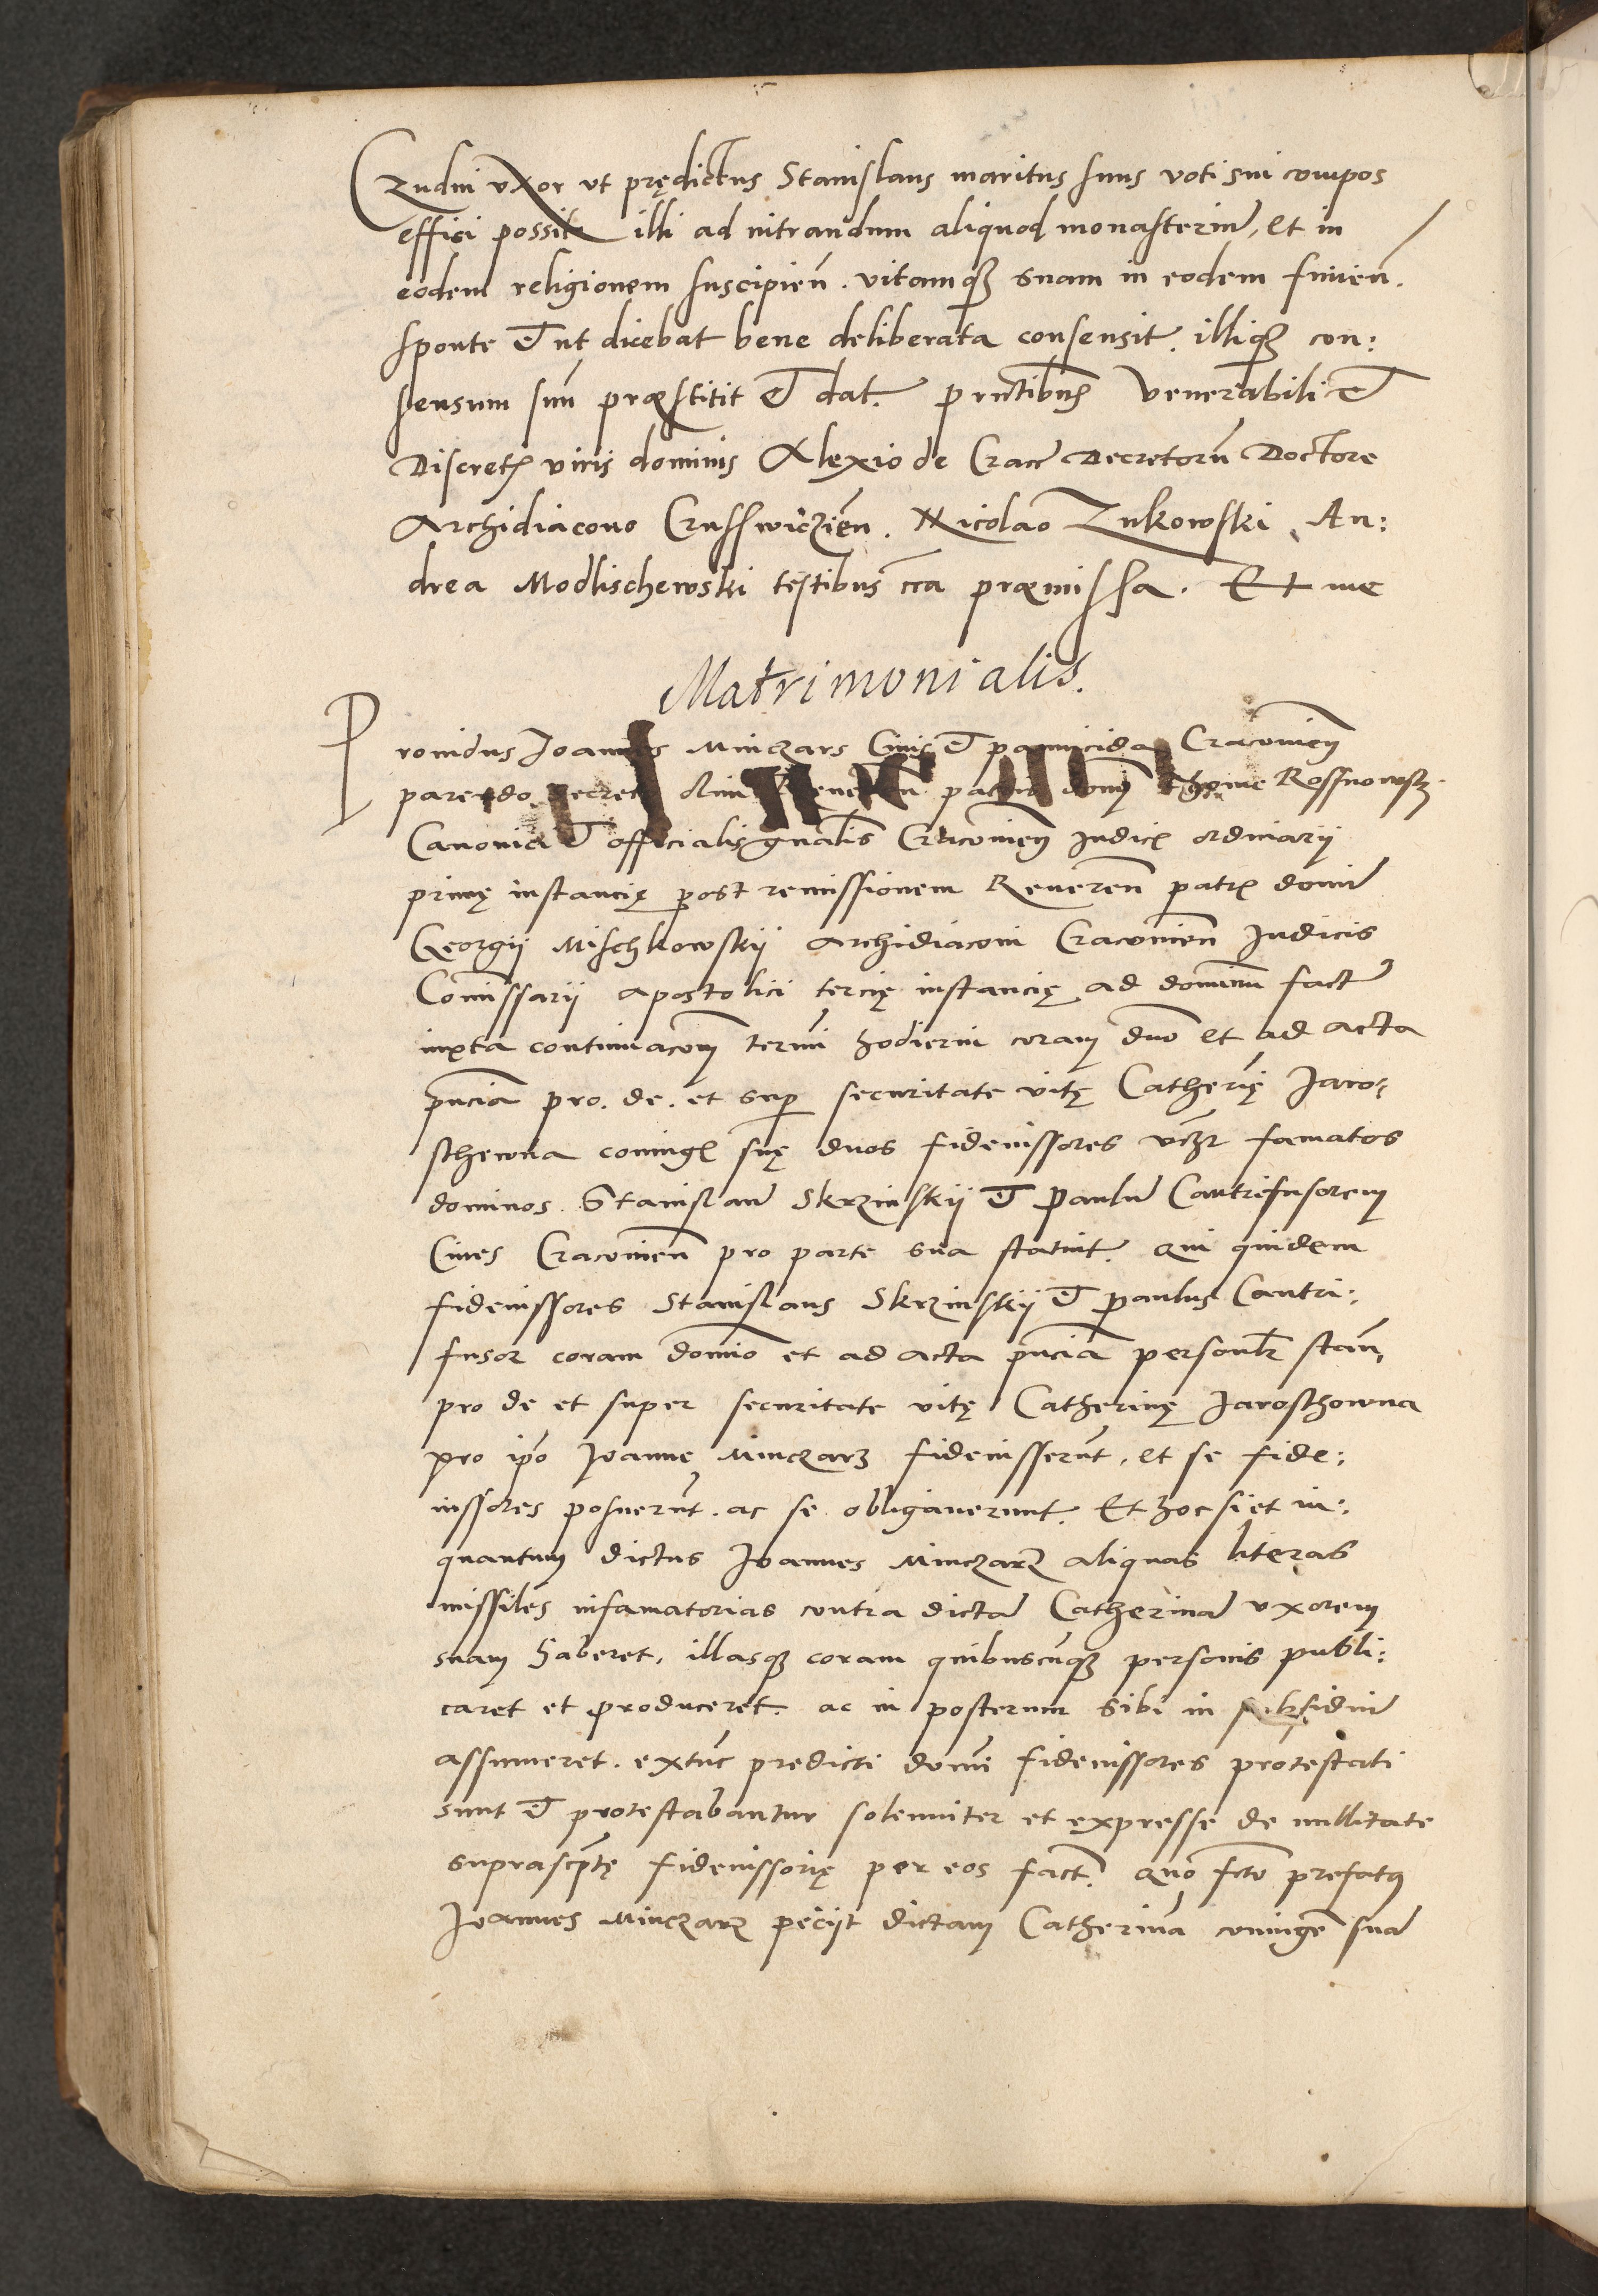 Czudni vxor vt prędictus Stanislaus maritus suus voti sui compos
effici possit illi ad intrandum aliquod monasteriū, et in
eodem religionem suscipień. vitamqȝ suam in eodem finień.
sponte et ut dicebat bene deliberata consensit. illiqȝ con:
sensum suū præstitit et dat. pntibus Venerabili et
Discretis viris dominis Alexio de Crac̄ Decretorū Doctore
Archidiacono Crusswiczień. Nicolao Zukowski, An:
drea Modlischewski testibus cͬca præmissa. Et me
Matrimonialis.
Prouidus Joannes Minczars Ciuis et pannicida Cracouień
parendo decreto olim Reuerēn patris domī Thome Rossnowskȝ
Canonici et officialis gn̄alis Cracouień Judicis ordinarij
primę instancię post remissionem Reuerēn patris dominī
Georgij Mischkowskij Archidiaconi Cracouień Judicis
Comissarij apostolici tercię instancię ad dominū fact̄
iuxta continuacōem termī hodierni coram dno et ad acta
pn̄cia pro. de. et sup securitate vitę Catherīę Jaro:
schewna coniugis suę duos fideiussores vȝ famatos
dominos Stanislaū Skrzinskij et Paulū Cantrifusorem
Ciues Cracouień pro parte sua statuit. qui quidem
fideiussores Stanislaus Skrzinskij et Paulus Cantri:
fusor coram domīo et ad acta pn̄cia personlr stan̄,
pro de et super securitate vitę Catherinę Jaroschowna
pro ipō Joanne Minczarȝ fideiusserūt, et se fide:
iussores posuerūt. ac se obligauerunt. Et hoc si et in:
quantum dictus Joannes Minczarz aliquas literas
missiles infamatorias contra dictā Catherinā vxorem
suam haberet, illasqȝ coram quibuscūqȝ personis publi:
caret et produceret. ac in posterum sibi in subsidiū
assumeret. extūc predicti domī fideiussores protestati
sunt et protestabantur solenniter et expresse de nullitate
suprascr̄ptę fideiussorię per eos fact̄. quo fcto prefatus
Joannes Minczarz pecijt dictam Catherinā coniugē suā